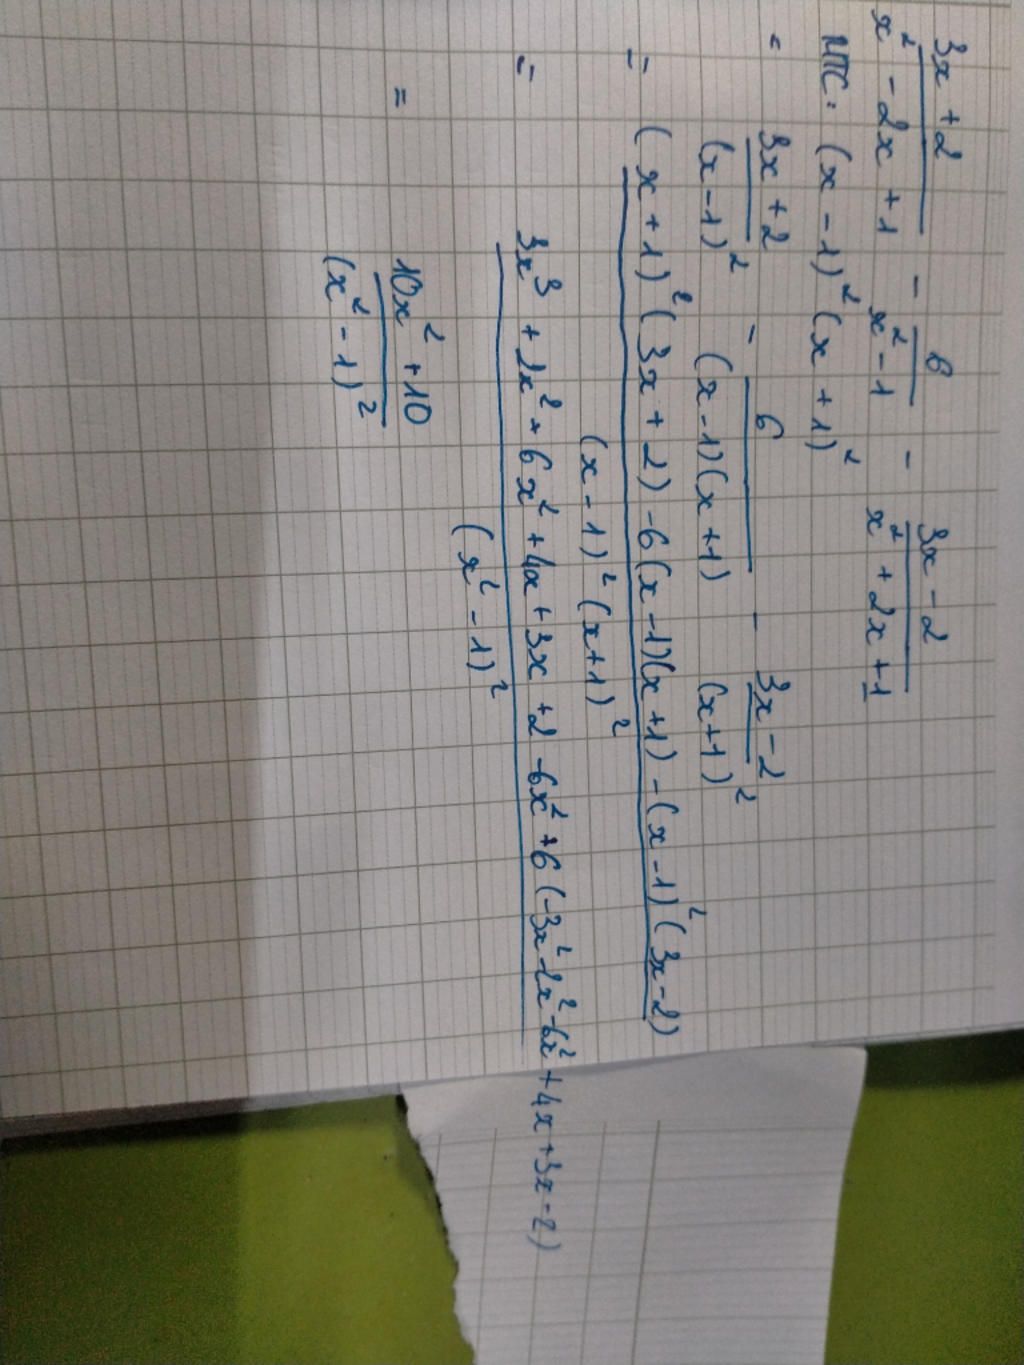 (3x + 2)/(x² - 2x + 1) - 6/(x² - 1) - (3x - 2)/(x² + 2x + 1)
MTC: (x - 1)² (x + 1)²
= (3x + 2)/(x - 1)² - 6/((x - 1)(x + 1)) - (3x - 2)/(x + 1)²
= ((x + 1)² (3x + 2) - 6(x - 1)(x + 1) - (x - 1)² (3x - 2))/((x - 1)² (x + 1)²)
= (3x³ + 2x² + 6x² + 4x + 3x + 2 - 6x² + 6 (-3x² - 2x² - 6x² + 4x + 3x - 2))/(x² - 1)²
= (10x² + 10)/(x² - 1)²